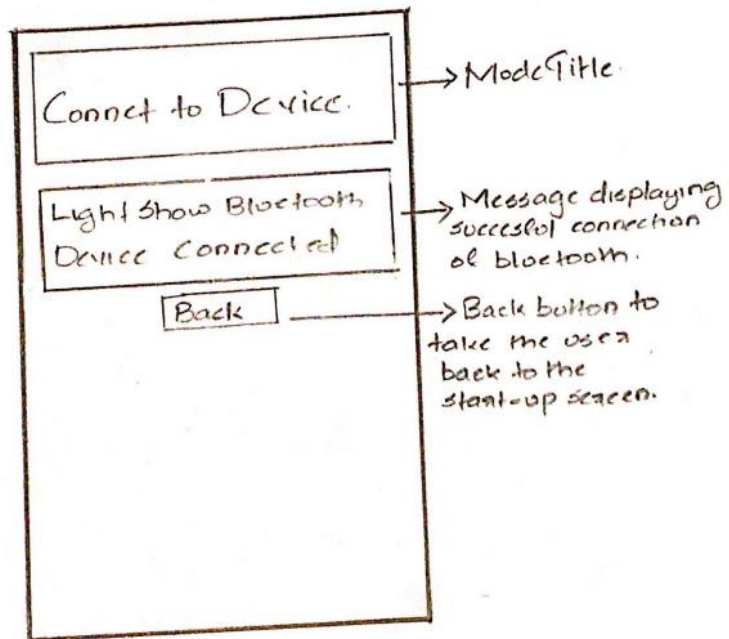 Connet to Device.
Mode Title.
Light Show Bluetooth
Device Connected
Message displaying
succesful connection
of bluetooth.
Back
Back button to
take the user
back to the
start-up screen.